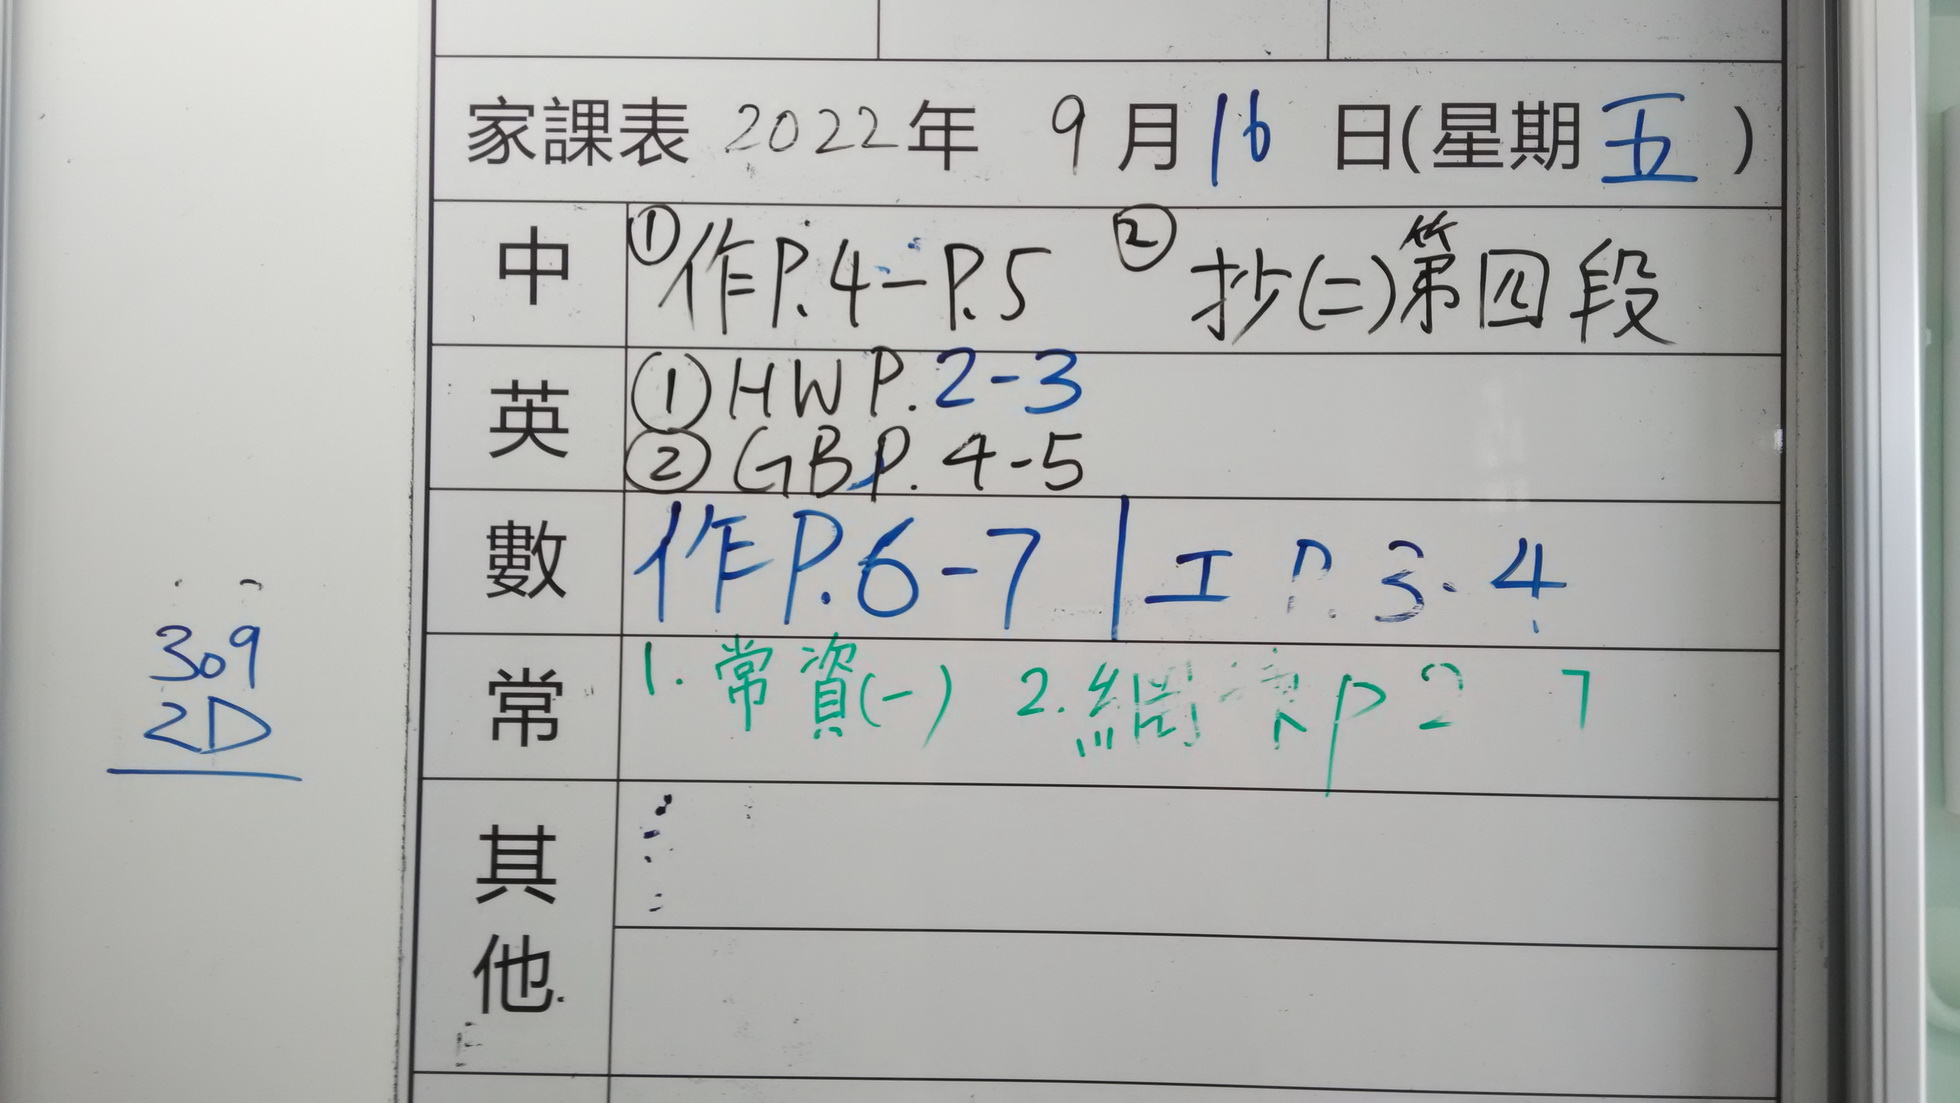 家課表 2022年 9月16日(星期五)
中 ①作P.4-P.5 ②抄(二)第四段
英 ①HW P.2-3
②GB P.4-5
數 作P.6-7 | 工 P.3-4
常 1.常資(一) 2.網 P 2 7
其他
309
2D